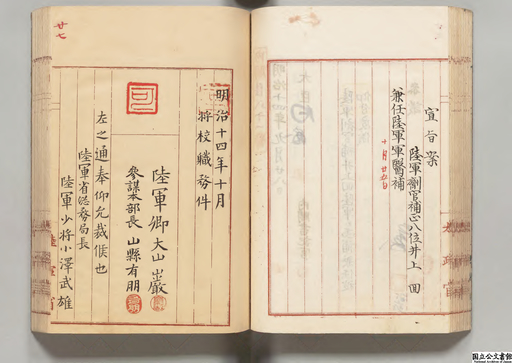 宣旨案
陸軍劑官補正八位井上
兼任陸軍軍醫補
十月廿五日
太政官
廿七
明治十四年十月
将校職務件
陸軍卿大山巌
参謀本部長山縣有朋
左之通奉仰允裁候也
陸軍省総務局長
陸軍少将小澤武雄
陸軍省
国立公文書館
National Archives of Japan